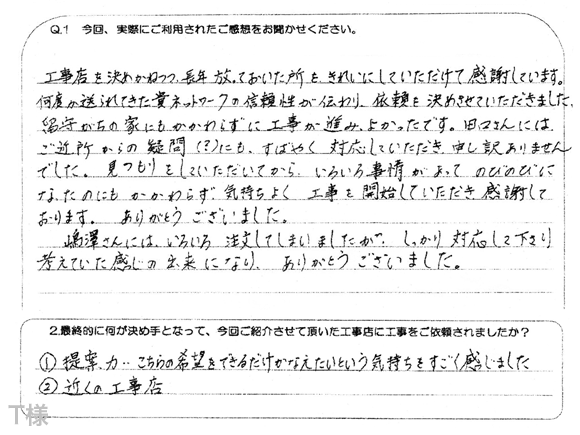 Q.1 今回、実際にご利用されたご感想をお聞かせください。
工事店を決めかねつつ、長年放っておいた所をきれいにしていただけて感謝しています。
何度か送られてきた貴ネットワークの信頼性が伝わり、依頼を決めさせていただきました。
留守がちの家にもかかわらずに工事が進み、よかったです。田口さんには
ご近所からの疑問(?)にも、すばやく対応していただき、申し訳ありません
でした。見つもりをしていただいてから、いろいろ事情があってのびのびに
なったのにもかかわらず、気持ちよく工事を開始していただき感謝して
おります。ありがとうございました。
嶋澤さんには、いろいろ注文してしまいましたが、しっかり対応して下さり
考えていた感じの出来になり、ありがとうございました。
2.最終的に何が決め手となって、今回ご紹介させて頂いた工事店に工事をご依頼されましたか?
① 提案力‥こちらの希望をできるだけかなえたいという気持ちをすごく感じました
② 近くの工事店
T様